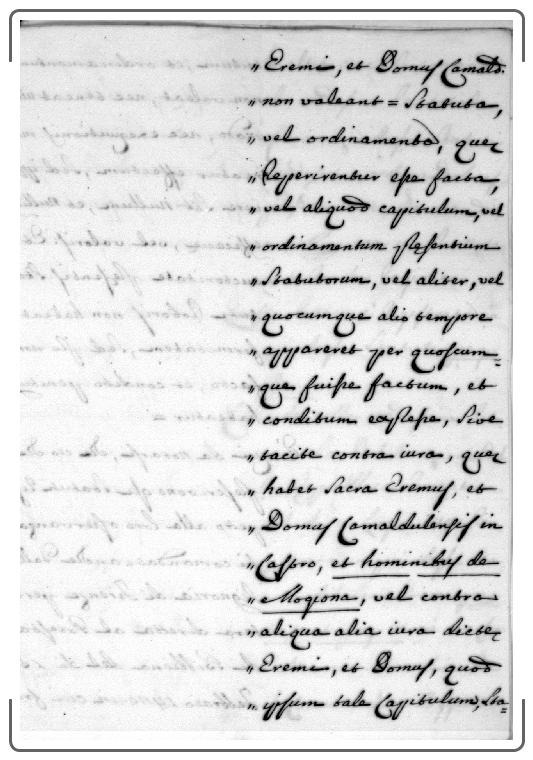 „ Eremi, et Domus Camald.
„ non valeant = Statuta,
„ vel ordinamenta, quæ
„ Reperirentur esse facta,
„ vel aliquod capitulum, vel
„ ordinamentum pręsentium
„ Statutorum, vel aliter, vel
„ quocumque alio tempore
„ appareret per quoscum=
„ que fuisse factum, et
„ conditum expresse, sive
„ tacite contra iura, quæ
„ habet Sacra Eremus, et
„ Domus Camaldulensis in
„ Castro, et hominibus de
„ Mogiona, vel contra
„ aliqua alia iura dictæ
„ Eremi, et Domus, quod
„ ipsum tale Capitulum, sta=